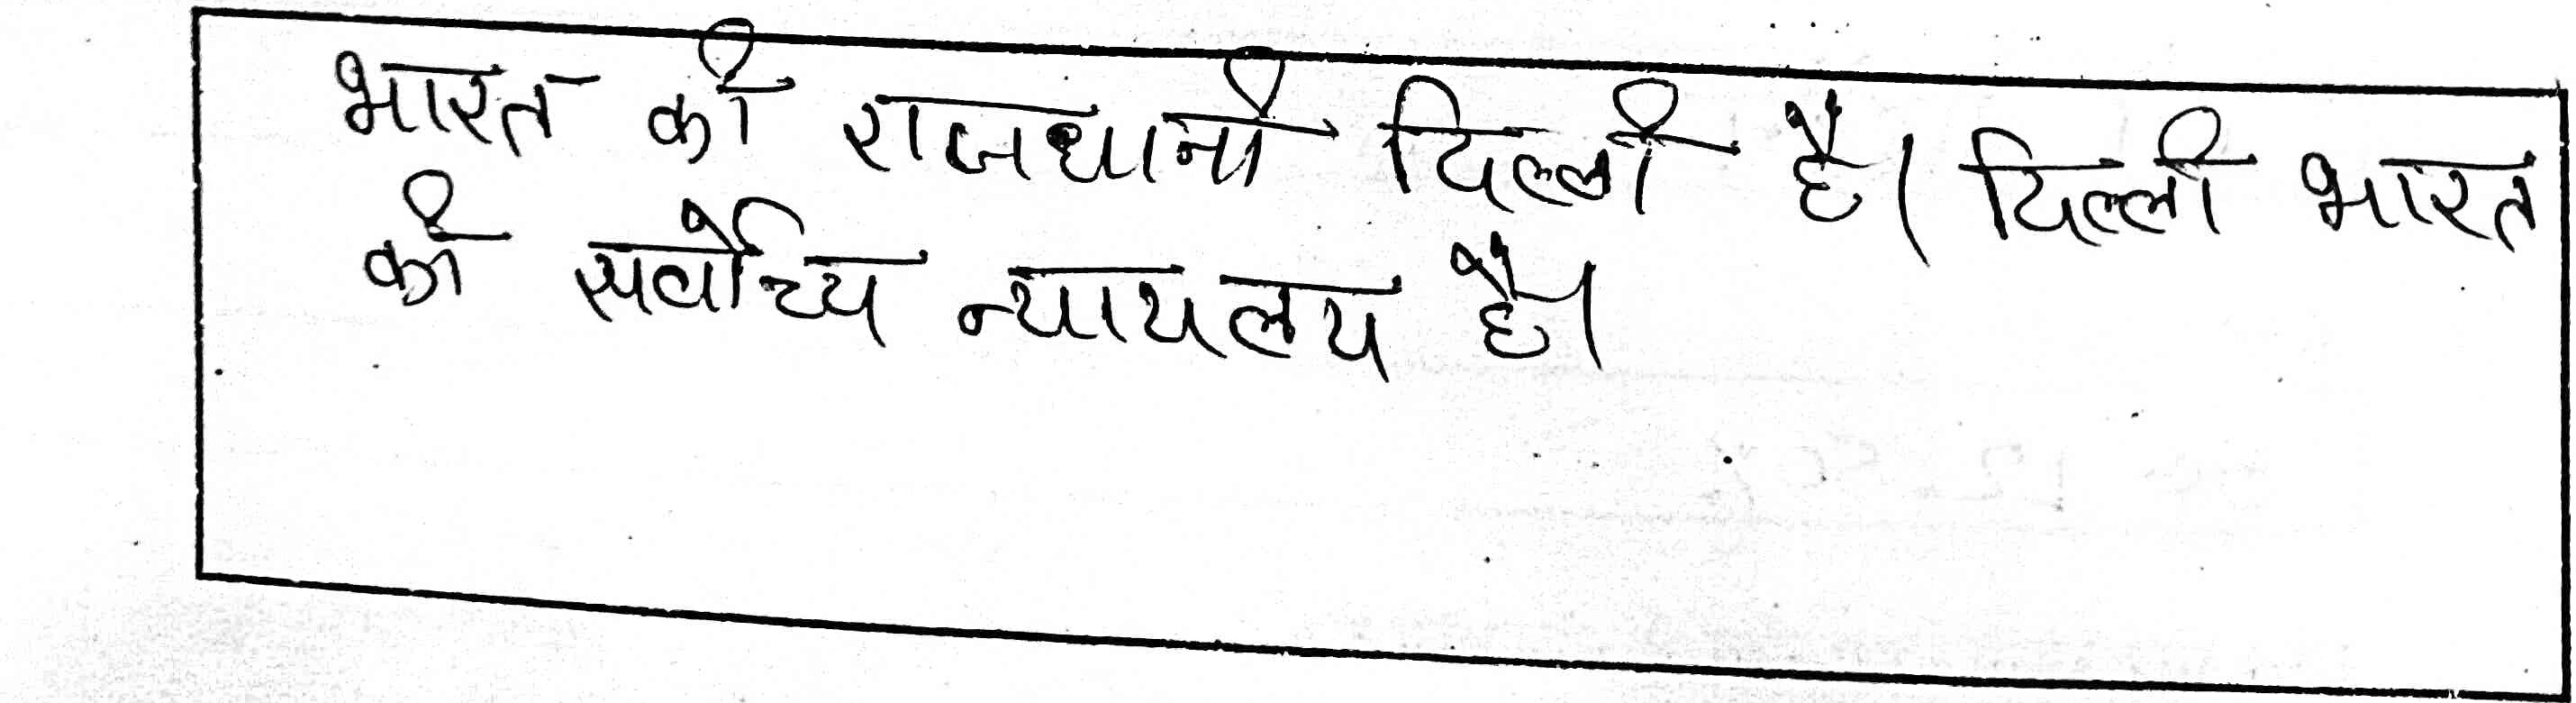 भारत की राजधानी दिल्ली है। दिल्ली भारत
की सर्वोच्य न्यायलय है।